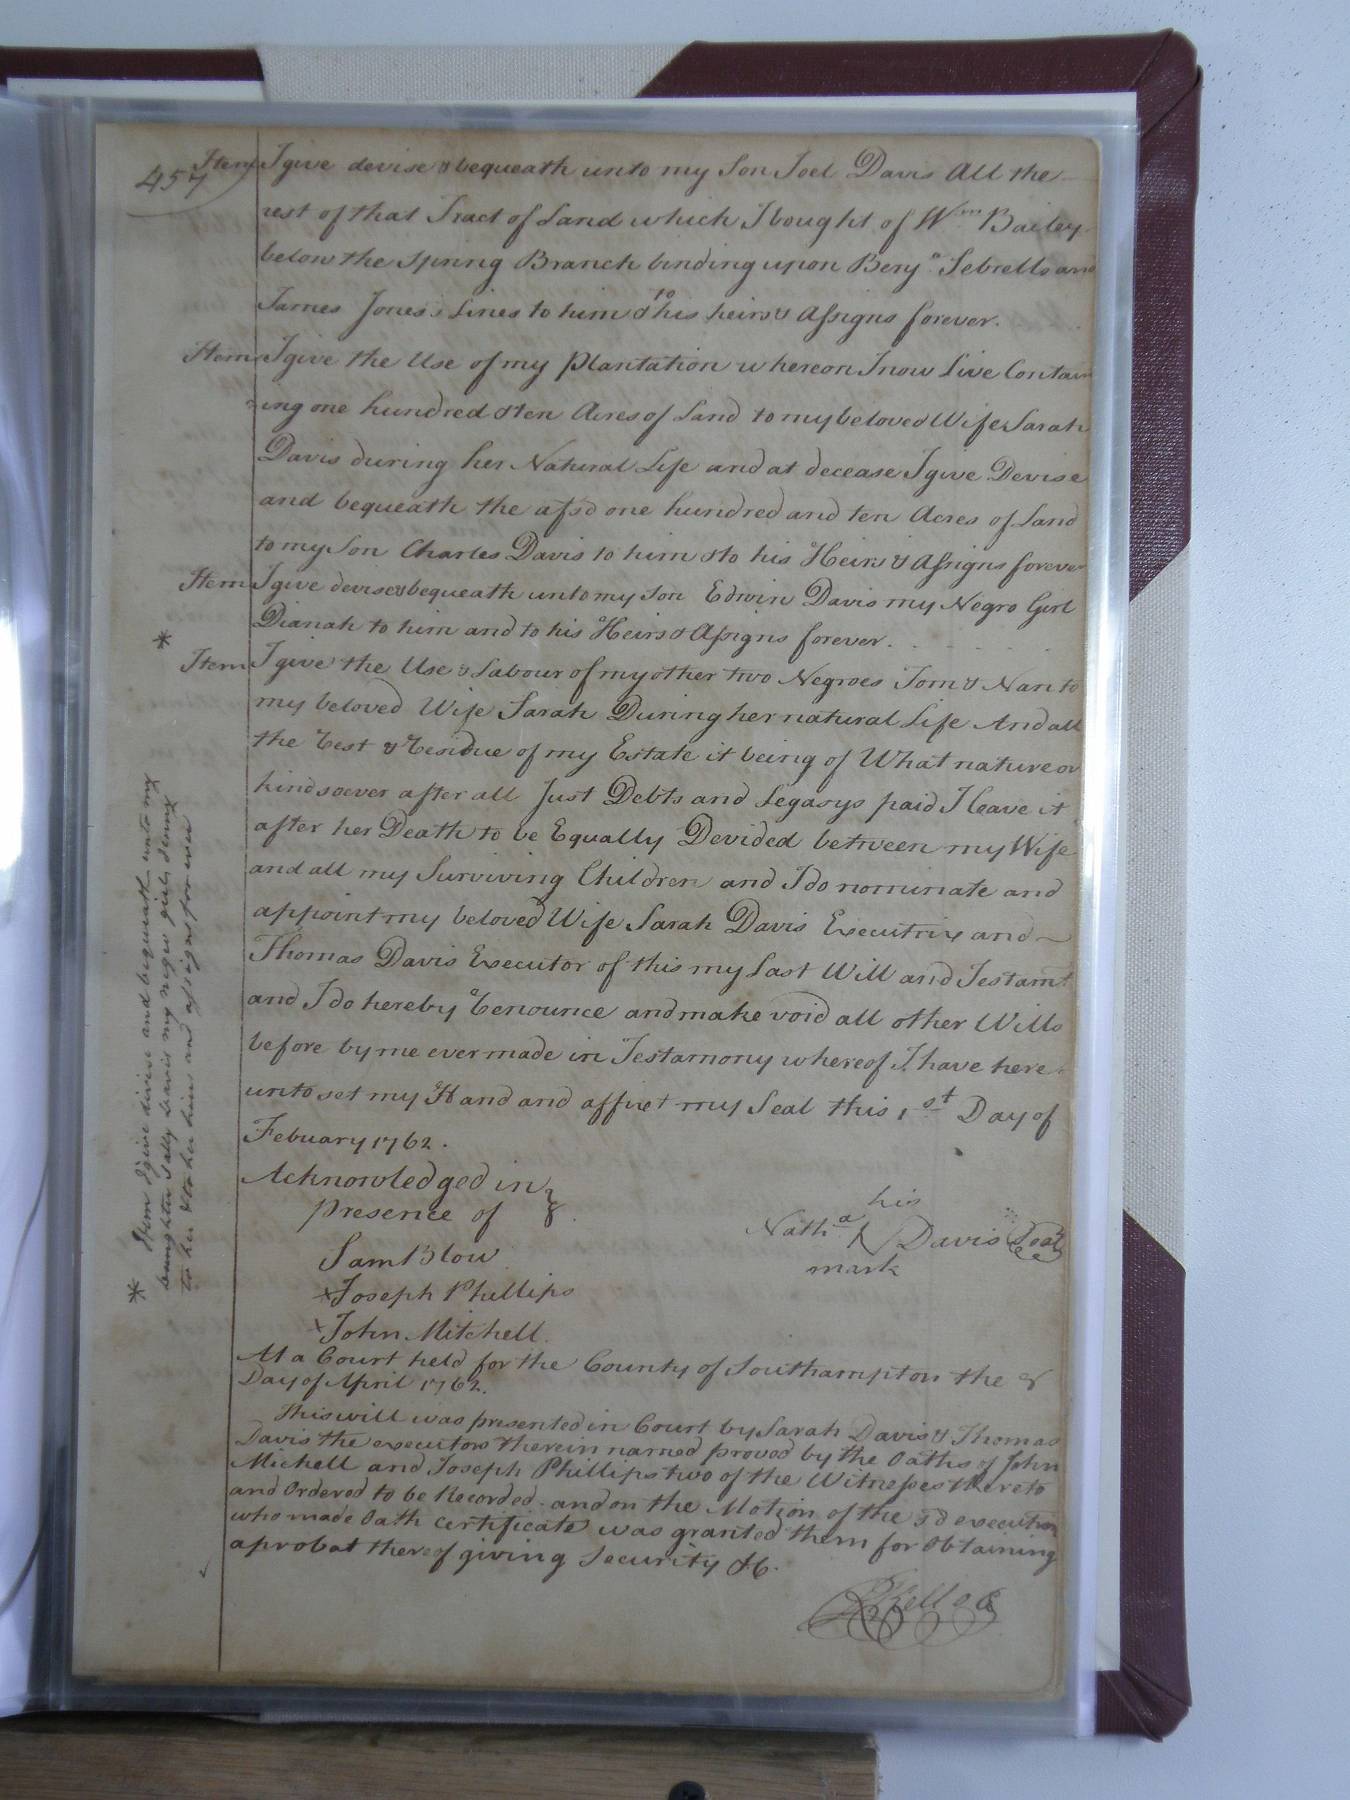 457
Item I give devise & bequeath unto my Son Joel Davis All the
rest of that Tract of Land which I bought of Wm Bailey
below the Spring Branch binding upon Benja Sebrells and
James Jones's Lines to him & to his heirs & Assigns forever.
Item I give the Use of my Plantation whereon I now Live Contain
ing one hundred & ten Acres of Land to my beloved Wife Sarah
Davis during her Natural Life and at decease I give Devise
and bequeath the afsd one hundred and ten Acres of Land
to my Son Charles Davis to him & to his Heirs & Assigns forever
Item I give devise & bequeath unto my Son Edwin Davis my Negro Girl
Dianah to him and to his Heirs & Assigns forever.
*
Item I give the Use & Labour of my other two Negroes Tom & Nan to
my beloved Wife Sarah During her natural Life And all
the rest & residue of my Estate it being of What nature or
kind soever after all Just Debts and Legasys paid I leave it
after her Death to be Equally Devided between my Wife
and all my Surviving Children and I do nominate and
appoint my beloved Wife Sarah Davis Executrix and
Thomas Davis Executor of this my Last Will and Testamt
and I do hereby renounce and make void all other Wills
before by me ever made in Testamony whereof I have here
unto set my Hand and affixt my Seal this 1st Day of
Febuary 1762.
Acknowledged in
presence of
his
Natha N Davis Seal
mark
Sam Blow
x Joseph Phillips
x John Mitchell.
* Item I give divise and bequeath unto my
daughter Sally Davis my negro girl Jenny
to her & to her heirs and assigns for ever
At a Court held for the County of Southampton the 8
Day of April 1762.
This will was presented in Court by Sarah Davis & Thomas
Davis the executors therein named proved by the Oaths of John
Michell and Joseph Phillips two of the Witnesses thereto
and Ordered to be Recorded. and on the Motion of the sd executors
who made Oath certificate was granted them for Obtaining
a probat thereof giving Security &c.